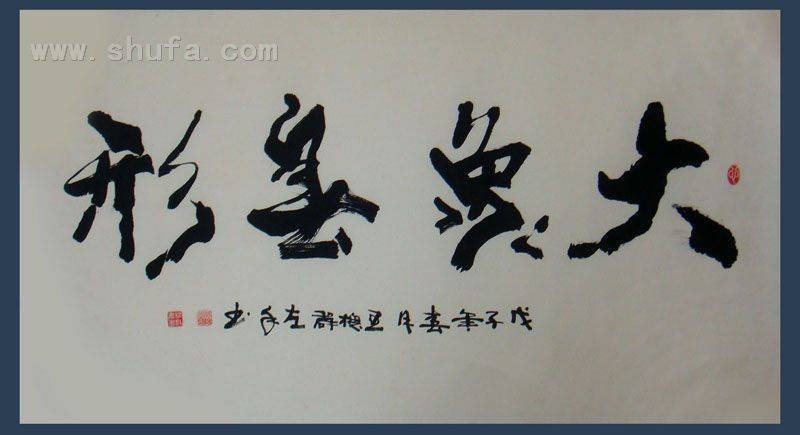 www.shufa.com
大象無形
戊子年春月 群左手书